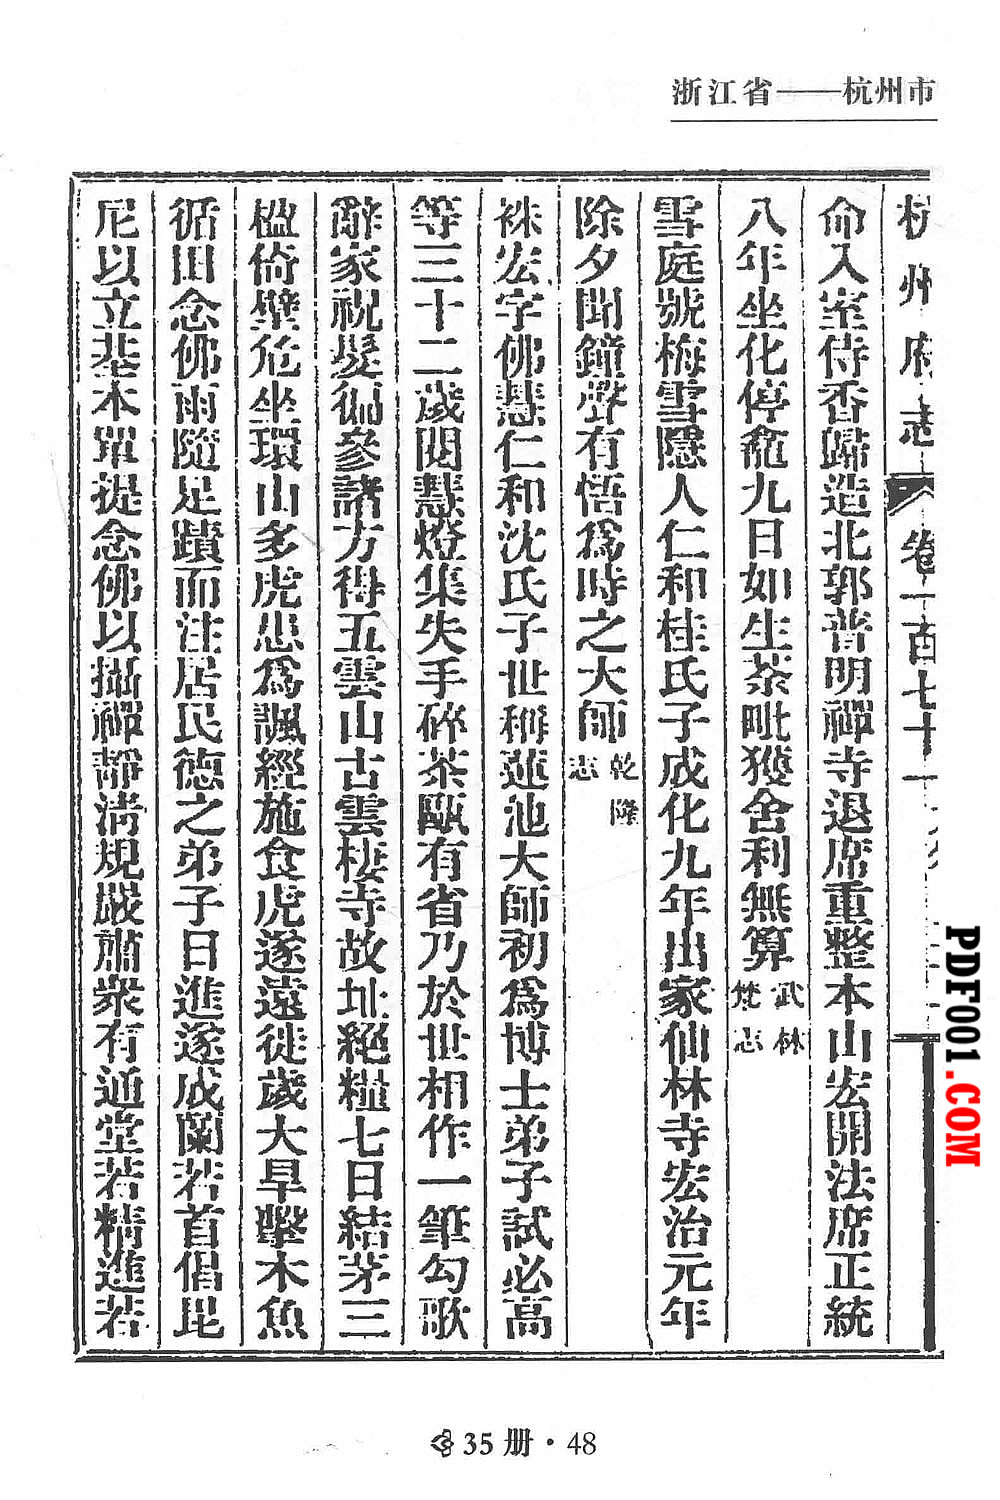 浙江省——杭州市
杭州府志 卷一百七十一
命入室侍香歸造北郭普明禪寺退席重整本山宏開法席正統
八年坐化停龕九日如生茶毗獲舍利無算武林梵志
雪庭號梅雪隱人仁和桂氏子成化九年出家仙林寺宏治元年
除夕聞鐘聲有悟爲時之大師乾隆志
袾宏字佛慧仁和沈氏子世稱蓮池大師初爲博士弟子試必高
等三十二歲閱慧燈集失手碎茶甌有省乃於世相作一筆勾歌
辭家祝髮徧參諸方得五雲山古雲棲寺故址絕糧七日結茅三
楹倚壁危坐環山多虎患爲諷經施食虎遂遠徙歲大旱擊木魚
循田念佛雨隨足蹟而注居民德之弟子日進遂成蘭若首倡毘
尼以立基本單提念佛以攝禪靜淸規嚴肅衆有通堂若精進若
35册·48
PDF001.COM